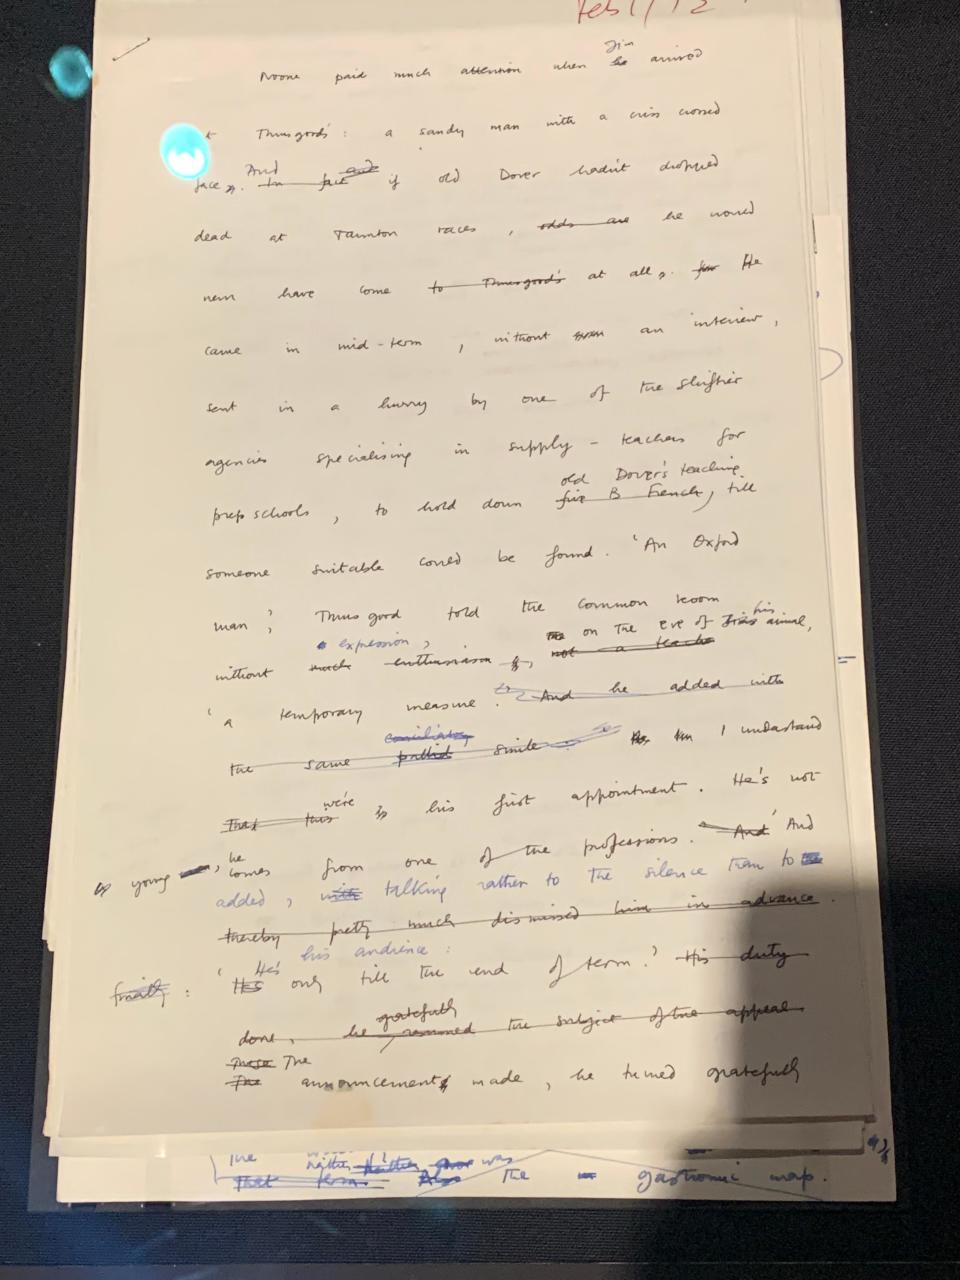 Feb 1/72
Jim
Noone paid much attention when he arrived
Thursgoods': a sandy man with a criss crossed
And and
face. In fact if old Dover hadn't dropped
dead at Taunton races, odds are he would
never have come to Thursgood's at all. He
came in mid-term, without an interview,
sent in a hurry by one of the shiftier
agencies specialising in supply-teachers for
old Dover's teaching
prep schools, to hold down five B French, till
someone suitable could be found. 'An Oxford
man', Thursgood told the common room
expression, on the eve of his arrival,
without much enthusiasm, not a teacher
'a temporary measure'. And he added with
conciliatory
the same pallid smile I understand
were
That this is his first appointment. He's not
young, he comes from one of the professions. And' And
added, with talking rather to the silence than to
thereby pretty much dismissed him in advance.
his audience:
He's
finally: 'His only till the end of term.' His duty
gratefully
done, he resumed the subject of the appeal
These The
The announcement made, he turned gratefully
The
was
that term. Also the gastronomic map.